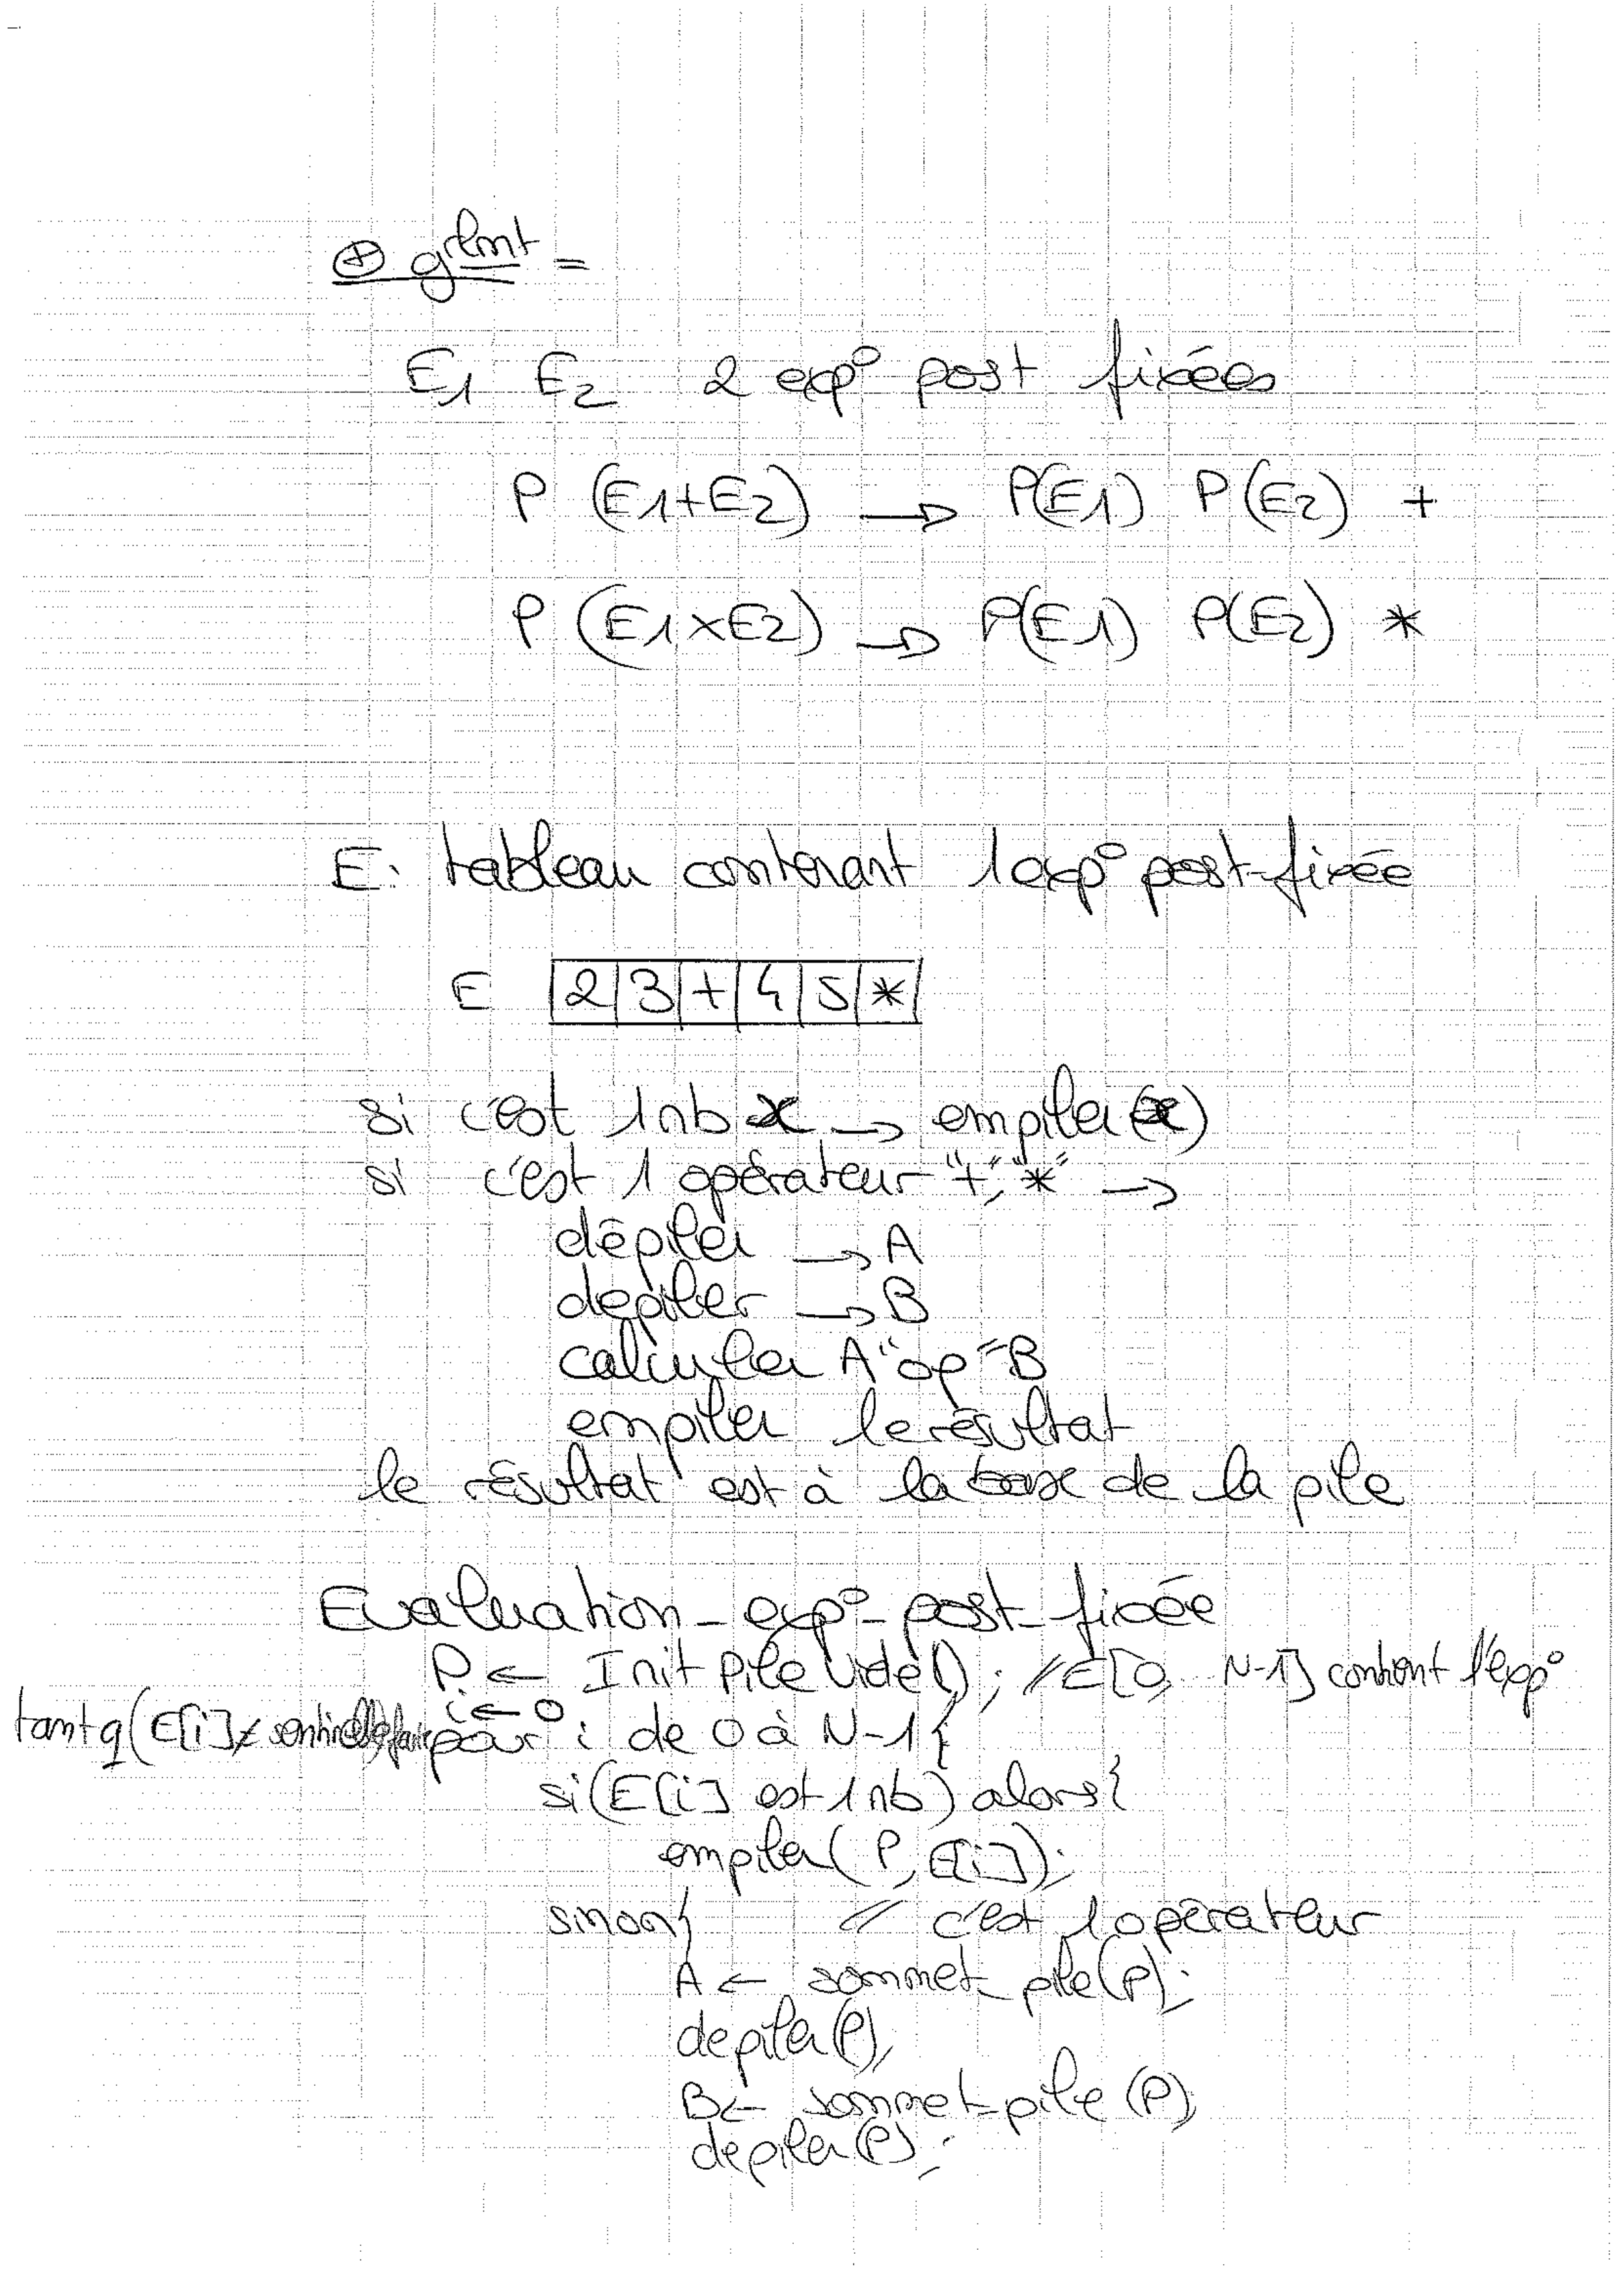 ⊕ grlmt =
E1 E2 2 exp° post fixées
P (E1+E2) → P(E1) P(E2) +
P (E1×E2) → P(E1) P(E2) *
E: tableau contenant 1 exp° post-fixée
E |2|3|+|4|5|*|
si c'est 1 nb x → empiler(x)
si c'est 1 opérateur "+", "*" →
dépiler → A
depiler → B
calculer A "op" B
empiler le résultat
le résultat est à la base de la pile
Evaluation_exp°_post_fixée
P ← Init Pile Vide(); // E[0, N-1] contient l'exp°
i ← 0
tantq(E[i] ≠ sentinelle)faire pour i de 0 à N-1 {
si(E[i] est 1 nb) alors{
empiler(P, E[i]);
sinon{ // c'est 1 opérateur
A ← sommet_pile(P);
depiler(P);
B ← sommet_pile(P);
depiler(P);